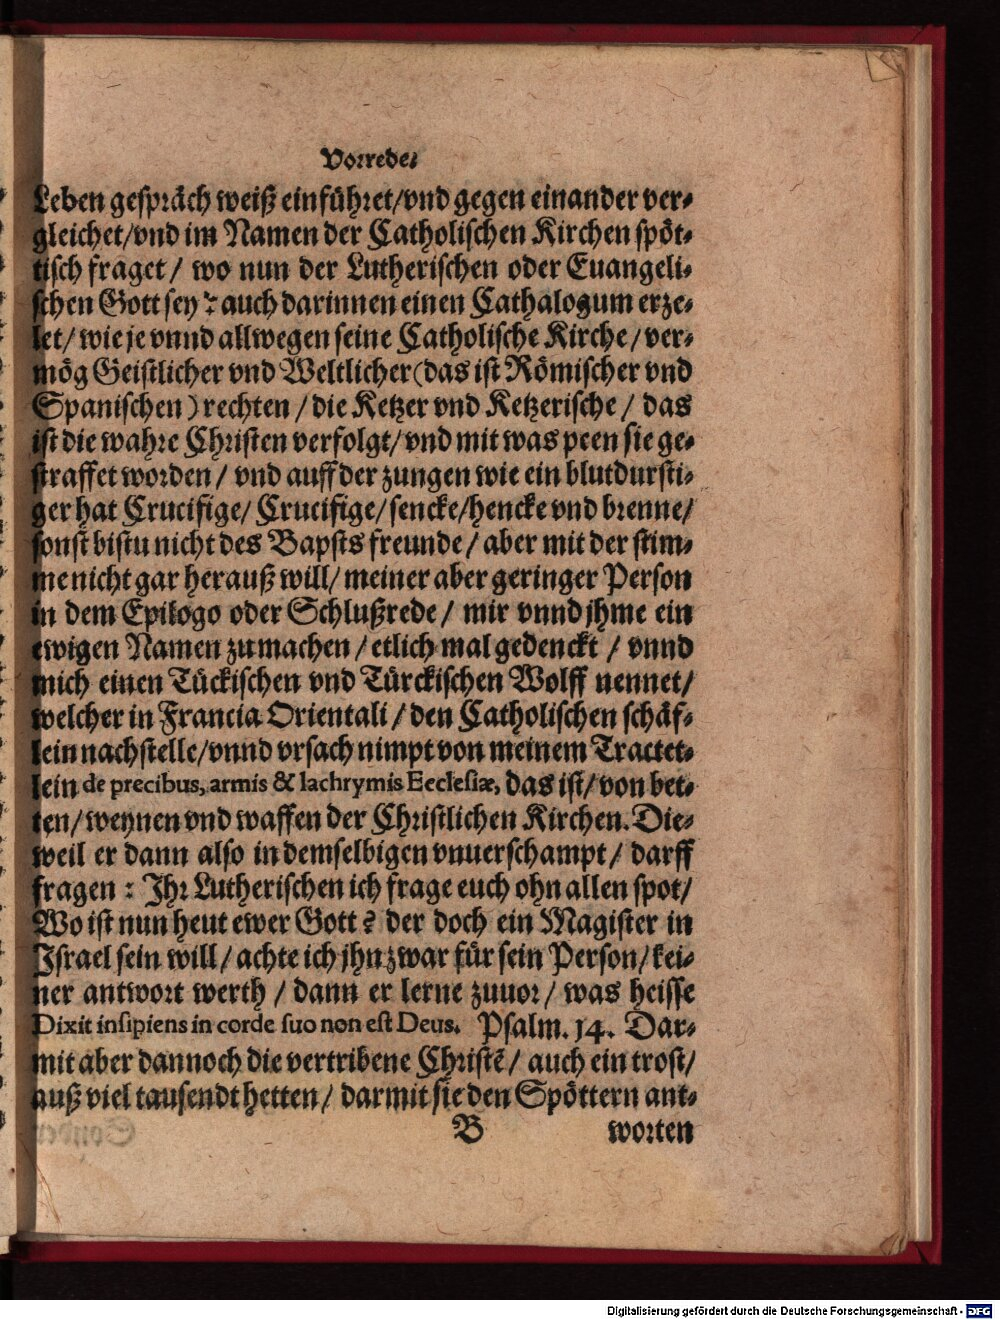 Vorrede.
Leben gespräch weiß einführet/vnd gegen einander ver-
gleichet/vnd im Namen der Catholischen Kirchen spöt-
tisch fraget / wo nun der Lutherischen oder Euangeli-
schen Gott sey? auch darinnen einen Cathalogum erze-
let/ wie je vnnd allwegen seine Catholische Kirche/ ver-
mög Geistlicher vnd Weltlicher (das ist Römischer vnd
Spanischen) rechten / die Ketzer vnd Ketzerische / das
ist die wahre Christen verfolgt/ vnd mit was peen sie ge-
straffet worden / vnd auff der zungen wie ein blutdursti-
ger hat Crucifige/ Crucifige/ sencke/hencke vnd brenne/
sonst bistu nicht des Bapsts freunde/ aber mit der stim-
me nicht gar herauß will/ meiner aber geringer Person
in dem Epilogo oder Schlußrede / mir vnnd jhme ein
ewigen Namen zu machen / etlich mal gedenckt / vnnd
mich einen Tückischen vnd Türckischen Wolff nennet/
welcher in Francia Orientali / den Catholischen schäf-
lein nachstelle/vnnd vrsach nimpt von meinem Tractet-
lein de precibus, armis & lachrymis Ecclesiæ, das ist/ von bet-
ten/ weynen vnd waffen der Christlichen Kirchen. Die-
weil er dann also in demselbigen vnuerschampt / darff
fragen : Ihr Lutherischen ich frage euch ohn allen spot/
Wo ist nun heut ewer Gott? der doch ein Magister in
Israel sein will/ achte ich jhn zwar für sein Person/ kei-
ner antwort werth / dann er lerne zuuor/ was heisse
Dixit insipiens in corde suo non est Deus. Psalm. 14. Dar-
mit aber dannoch die vertribene Christẽ/ auch ein trost/
auß viel tausendt hetten/ darmit sie den Spöttern ant-
B worten
Digitalisierung gefördert durch die Deutsche Forschungsgemeinschaft - DFG